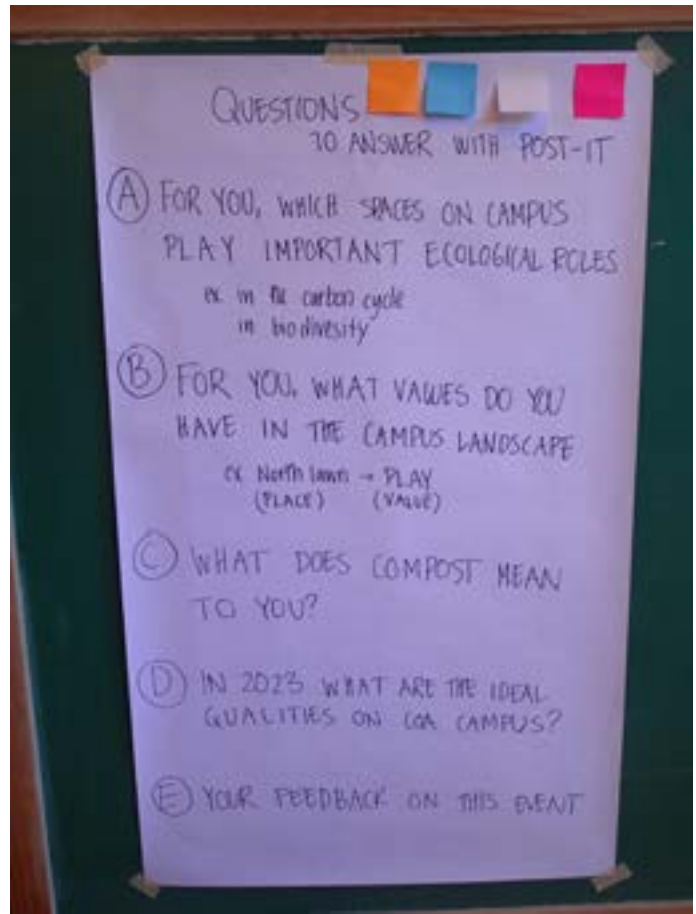 QUESTIONS
TO ANSWER WITH POST-IT
A FOR YOU, WHICH SPACES ON CAMPUS
PLAY IMPORTANT ECOLOGICAL ROLES
ex in the carbon cycle
in biodivesity
B FOR YOU, WHAT VALUES DO YOU
HAVE IN THE CAMPUS LANDSCAPE
ex North lawn → PLAY
(PLACE) (VALUE)
C WHAT DOES COMPOST MEAN
TO YOU?
D IN 2023 WHAT ARE THE IDEAL
QUALITIES ON COA CAMPUS?
E YOUR FEEDBACK ON THIS EVENT